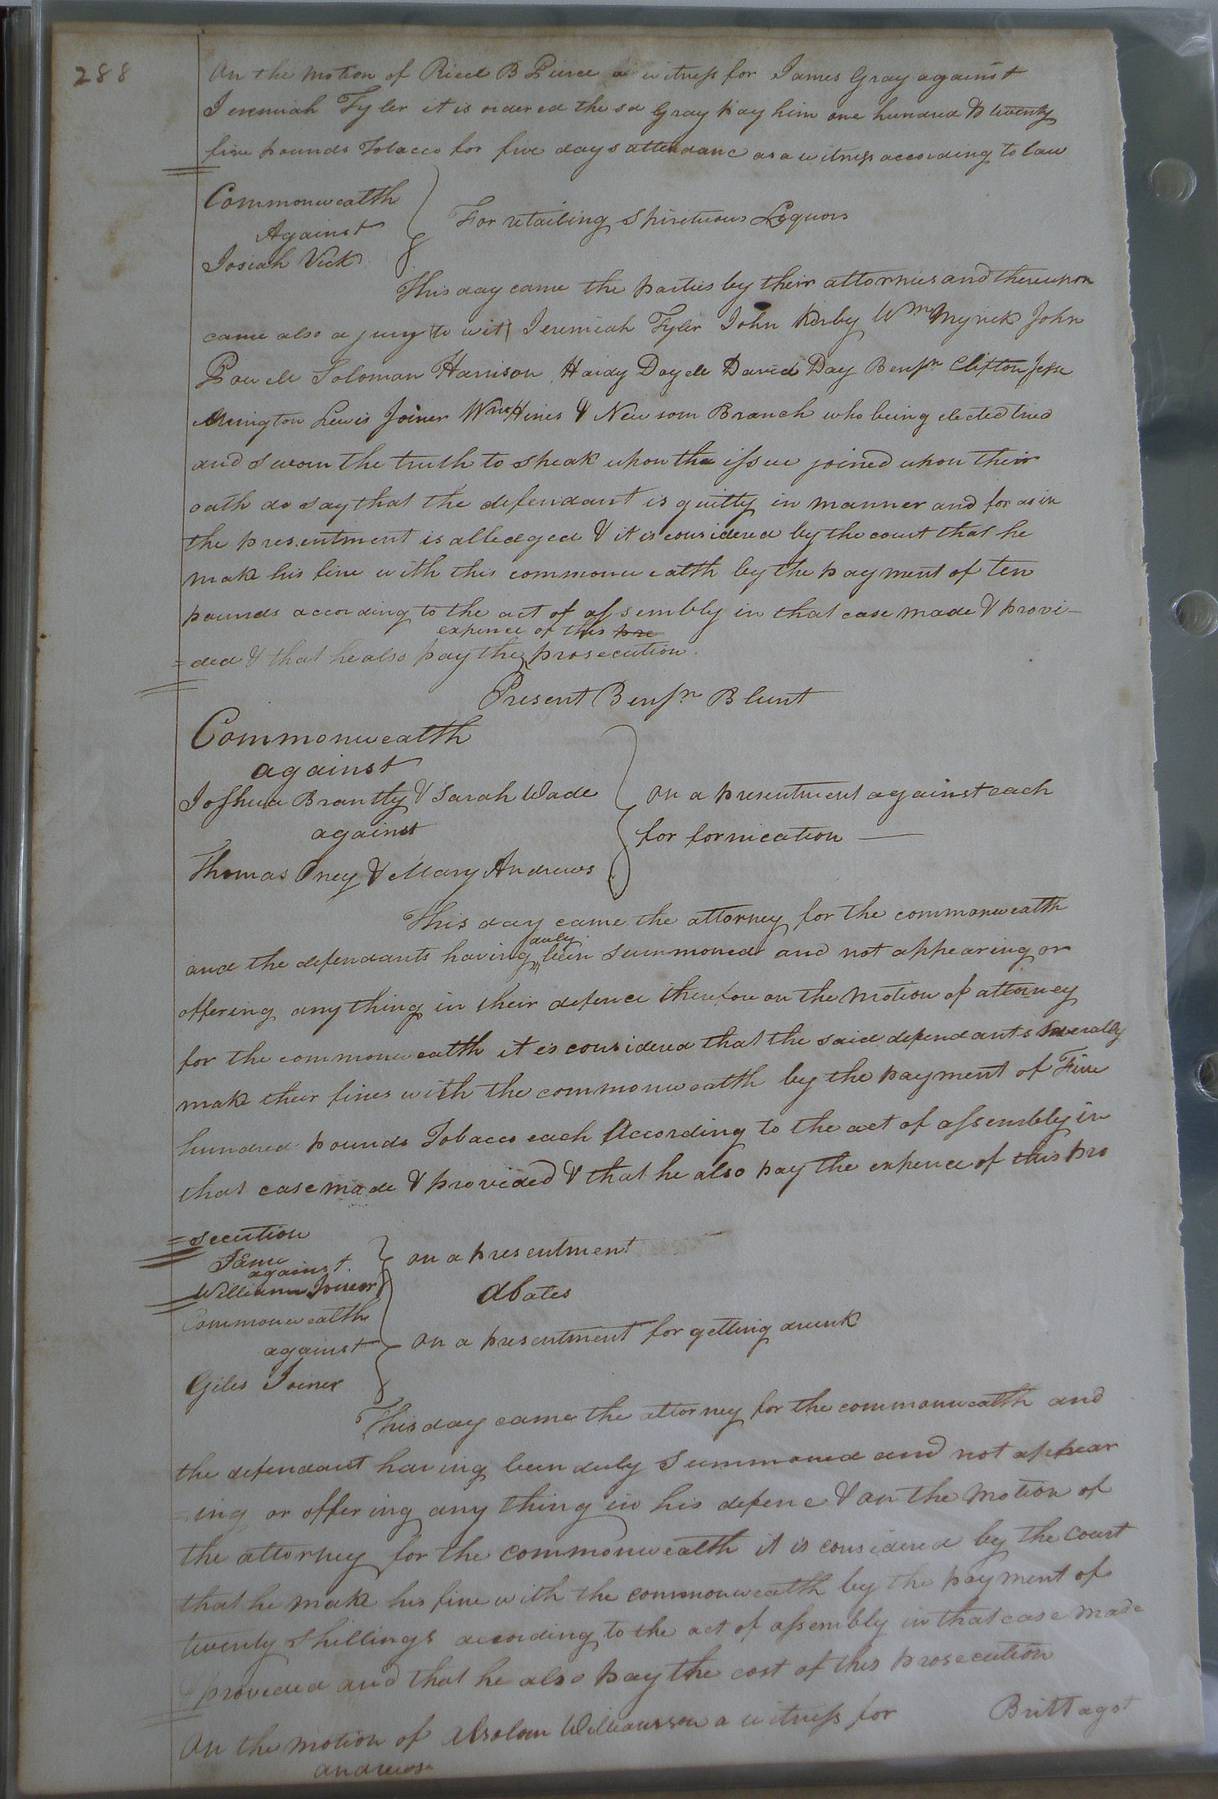 288
On the motion of Ricd B Pierce a witness for James Gray against
Jeremiah Tyler it is ordered the sd Gray pay him one hundred & twenty
five pounds Tobacco for five days attendanc as a witness according to law
Commonwealth
Against
Josiah Vick
For retailing Spirituous Lyquors
This day came the parties by their attornies and thereupon
came also a jury (to wit) Jeremiah Tyler John Kirby Wm Myrick John
Powell Soloman Harrison Hardy Doyell David Day Benjn Clifton Jesse
Arrington Lewis Joiner Wm Hines & Newsom Branch who being elected tried
and sworn the truth to speak upon the issue joined upon their
oath do say that the defendant is guilty in manner and for as in
the presentment is alledged & it is considered by the court that he
make his fine with this commonwealth by the payment of ten
pounds according to the act of assembly in that case made & provi-
expence of this pre
=ded & that he also pay the prosecution.
Present Benjn Blunt
Commonwealth
against
Joshua Brantly & Sarah Wade
against
Thomas Pney & Mary Andrews
On a presentment against each
for fornication
This day came the attorney for the commonwealth
duly
and the defendants having been Summoned and not appearing or
offering any thing in their defence therefore on the motion of attorney
for the commonwealth it is considered that the said defendants Severally
make their fines with the commonwealth by the payment of Five
hundred pounds Tobacco each According to the act of assembly in
that case made & provided & that he also pay the expence of this pro
=secution
Same
against
William Joiner
on a presentment
Abates
Commonwealth
against
Giles Joiner
on a presentment for getting drunk
This day came the attorney for the commonwealth and
the defendant having been duly Summoned and not appear
=ing or offering any thing in his defence & on the motion of
the attorney for the commonwealth it is considered by the Court
that he make his fine with the commonwealth by the payment of
twenty Shillings according to the act of assembly in that case made
& provided and that he also pay the cost of this prosecution
On the motion of Absolom Williamson a witness for Britt agst
andrews